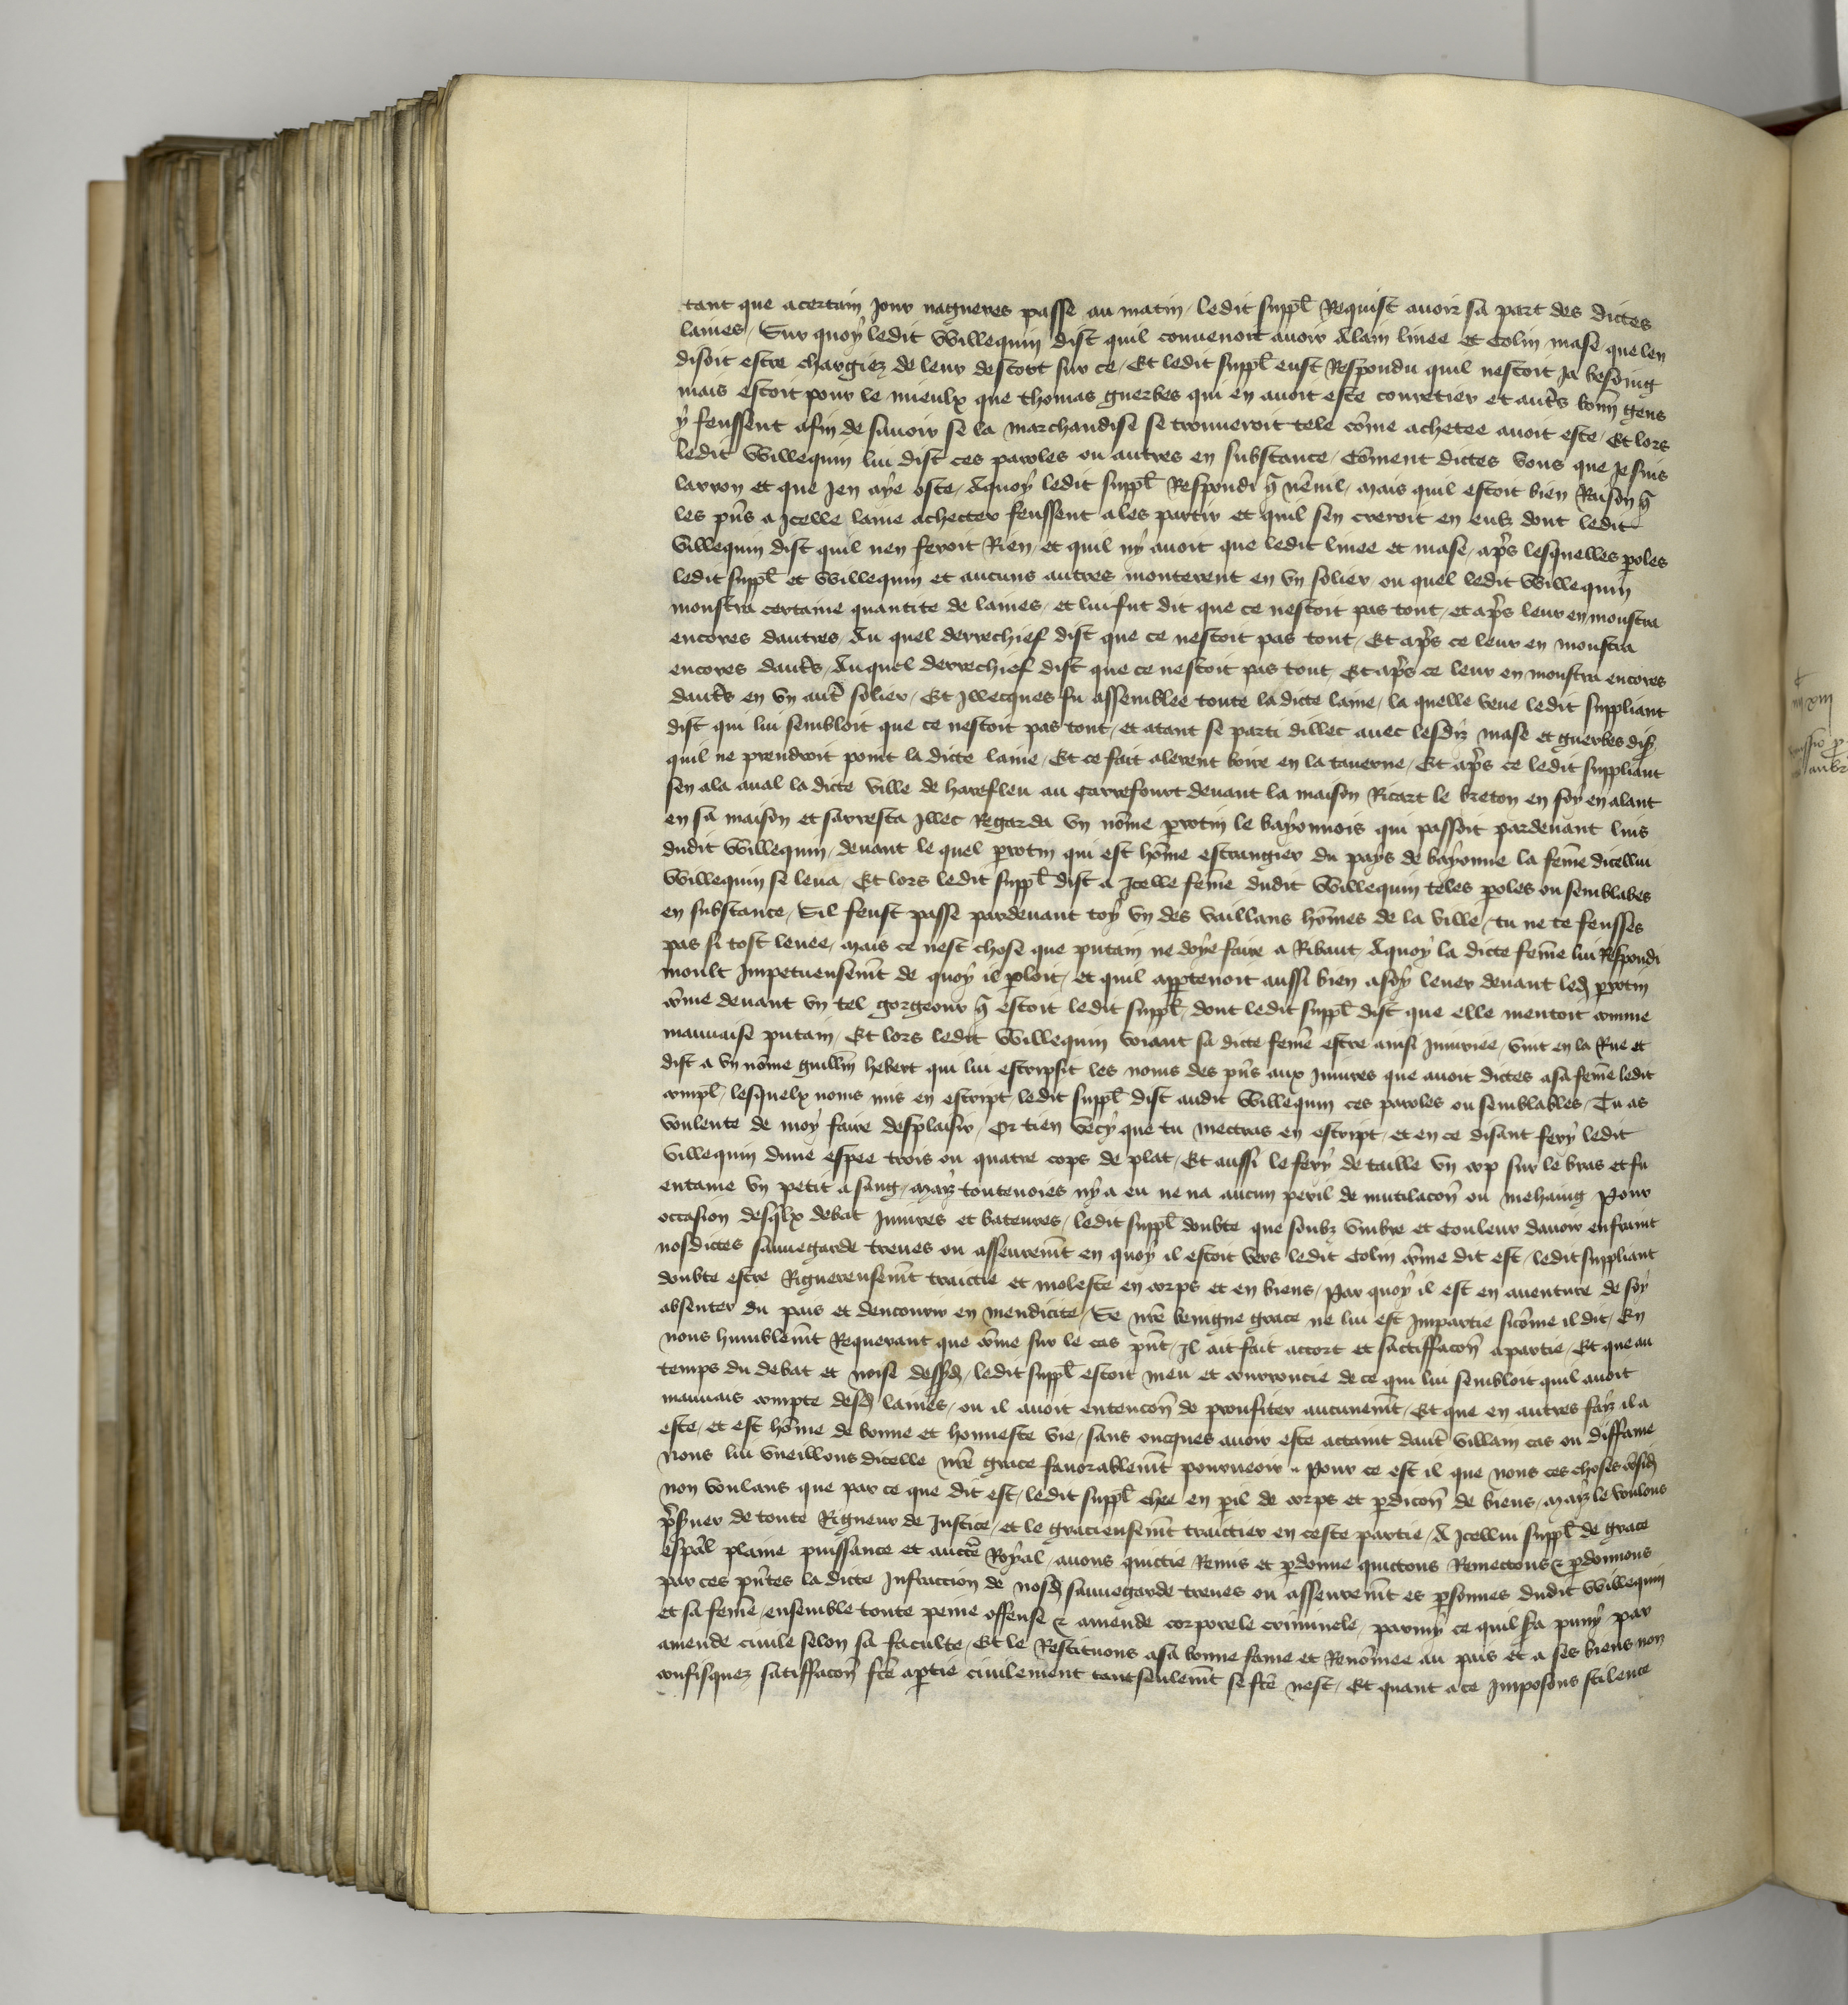 tant que a certain jour nagueres passe au matin / ledit suppl̃ Requist avoir sa part des dictes
laines / Sur quoy ledit Willequin dist quil convenoit avoir Alain linee et Colin mase que len
disoit estre chargiez de leur descort sur ce / Et ledit suppl̃ eust Respondu quil nestoit ja besoing
mais estoit pour le mieulx que thomas guerbes qui en avoit este couretier et autr̃s bonñ gens
y feussent afin de savoir se la marchandise se trouveroit tele cõme achetee avoit este / Et lors
ledit Willequin lui dist ces paroles ou autres en substance / Cõment dictes vous que je suis
larron et que jen aye oste / Aquoy ledit suppl̃ Respondi q̃ nẽnil / mais quil estoit bien Raison q̃
les pñs a jcelle laine achecter feussent a les partir et quil sen creroit en eulz dont ledit
Willequin dist quil nen feroit Rien / et quil ny avoit que ledit linee et mase / ap̃s lesquelles p̃oles
ledit suppl̃ et Willequin et aucuns autres monterent en vn solier / ou quel ledit Willequin
monstra certaine quantite de laines / et lui fut dit que ce nestoit pas tout / et ap̃s leur en monstra
encores dautres / Au quel derrechief dist que ce nestoit pas tout / Et ap̃s ce leur en monstra
encores dautr̃s / Auquel derrechief dist que ce nestoit pas tout / Et ap̃s ce leur en monstra encores
dautr̃s en vn autr̃ solier / Et jllecques fu assemblee toute la dicte laine / la quelle veue ledit suppliant
dist qui lui sembloit que ce nestoit pas tout / et atant se parti dillec avec lesdiz mase et guerbes dis̃
quil ne prendroit point la dicte laine / Et ce fait alerent boire en la taverne / Et ap̃s ce ledit suppliant
sen ala aval la dicte ville de harefleu au Carrefourt devant la maison Ricart le breton en soy en alant
en sa maison et sarresta jllec Regarda vn nõme protin le bayonnois qui passoit pardevant luis
dudit Willequin / devant le quel protin qui est hõme estrangier du pays de bayonne la fem̃e dicellui
Willequin se leva / Et lors ledit suppl̃ dist a jcelle fem̃e dudit Willequin teles p̃oles ou semblabes
en substance / Sil feust passe pardevant toy vn des vaillans hõmes de la ville / tu ne te feusses
pas si tost levee / mais ce nest chose que putain ne doye faire a Ribaut / Aquoy la dicte fem̃e lui Respondi
moult Impetueusem̃t de quoy il p̃loit / et quil app̃tenoit aussi bien a soy lever devant led̃ protin
cõme devant vn tel gorgeour q̃ estoit ledit suppl̃ / dont ledit suppl̃ dist que elle mentoit comme
mauvaise putain / Et lors ledit Willequin voiant sa dicte fem̃e estre ainsi Iniuriee / vint en la Rue et
dist a vn nõme guillm̃ hebert qui lui escripsit les noms des pñs aux Iniures que avoit dictes a sa fem̃e ledit
compl̃ / lesquelx noms mis en escript / ledit suppl̃ dist audit Willequin ces paroles ou semblables / Tu as
voulente de moy faire desplaisir / Or tien vecy que tu mectras en escript / et en ce disant fery ledit
Willequin dune espee trois ou quatre cops de plat / Et aussi le fery de taille vn cop sur le bras et fu
entame vn petit a sang / maiz toutevoies ny a eu ne na aucun peril de mutilacoñ ou mehaing Pour
occasion desq̃lx debat Iniures et bateures / ledit suppl̃ doubte que soubz vmbre et Couleur davoir enfraint
nosdictes sauvegarde treves ou asseurem̃t en quoy il estoit vers ledit Colin cõme dit est / ledit suppliant
doubte estre Riguereusem̃t traictie et moleste en corps et en biens / Par quoy il est en aventure de soy
absenter du pais et dencourir en mendicite / Se nr̃e benigne grace ne lui est Impartie sicõme il dit / En
nous humblem̃t Requerant que cõme sur le cas pñt / Il ait fait accort et sactiffacoñ apartie / Et que au
temps du debat et noise dessd̃ / ledit suppl̃ estoit meu et courroucie de ce qui lui sembloit quil avoit
mauvais compte desd̃ laines / ou il avoit entencoñ de proufiter aucunem̃t / Et que en autres faiz il a
este / et est hõme de bonne et honneste vie / sans oncques avoir este actaint dautr̃ villain cas ou diffame
Nous lui vueillons dicelle nr̃e grace favorablem̃t pourveoir // Pour ce est il que nous ces choses cõsid̃
non voulans que par ce que dit est / ledit suppl̃ chee en p̃il de corps et p̃dicoñ de biens / maiz le voulons
p̃s̃ver de toute Rigueur de Justice / et le gracieusem̃t traictier en ceste partie / A jcellui suppl̃ de grace
esp̃al plaine puissance et aucte͂ Royal / avons quictie Remis et p̃donne quictons Remectons & p̃donnons
par ces pñtes la dicte Infraccion de nosd̃ sauvegarde treves ou asseurem̃t es p̃sonnes dudit Willequin
et sa fem̃e / ensemble toute peine offense & amende corporele criminele / parmy ce quil s̃a puny par
amende civile selon sa faculte / Et le Restituons a sa bonne fame et Renõmee au pais et a ses biens non
confisquez satiffacoñ fc̃e ap̃tie civilement tant seulem̃t se fc̃e nest / Et quant a ce Imposons scilence